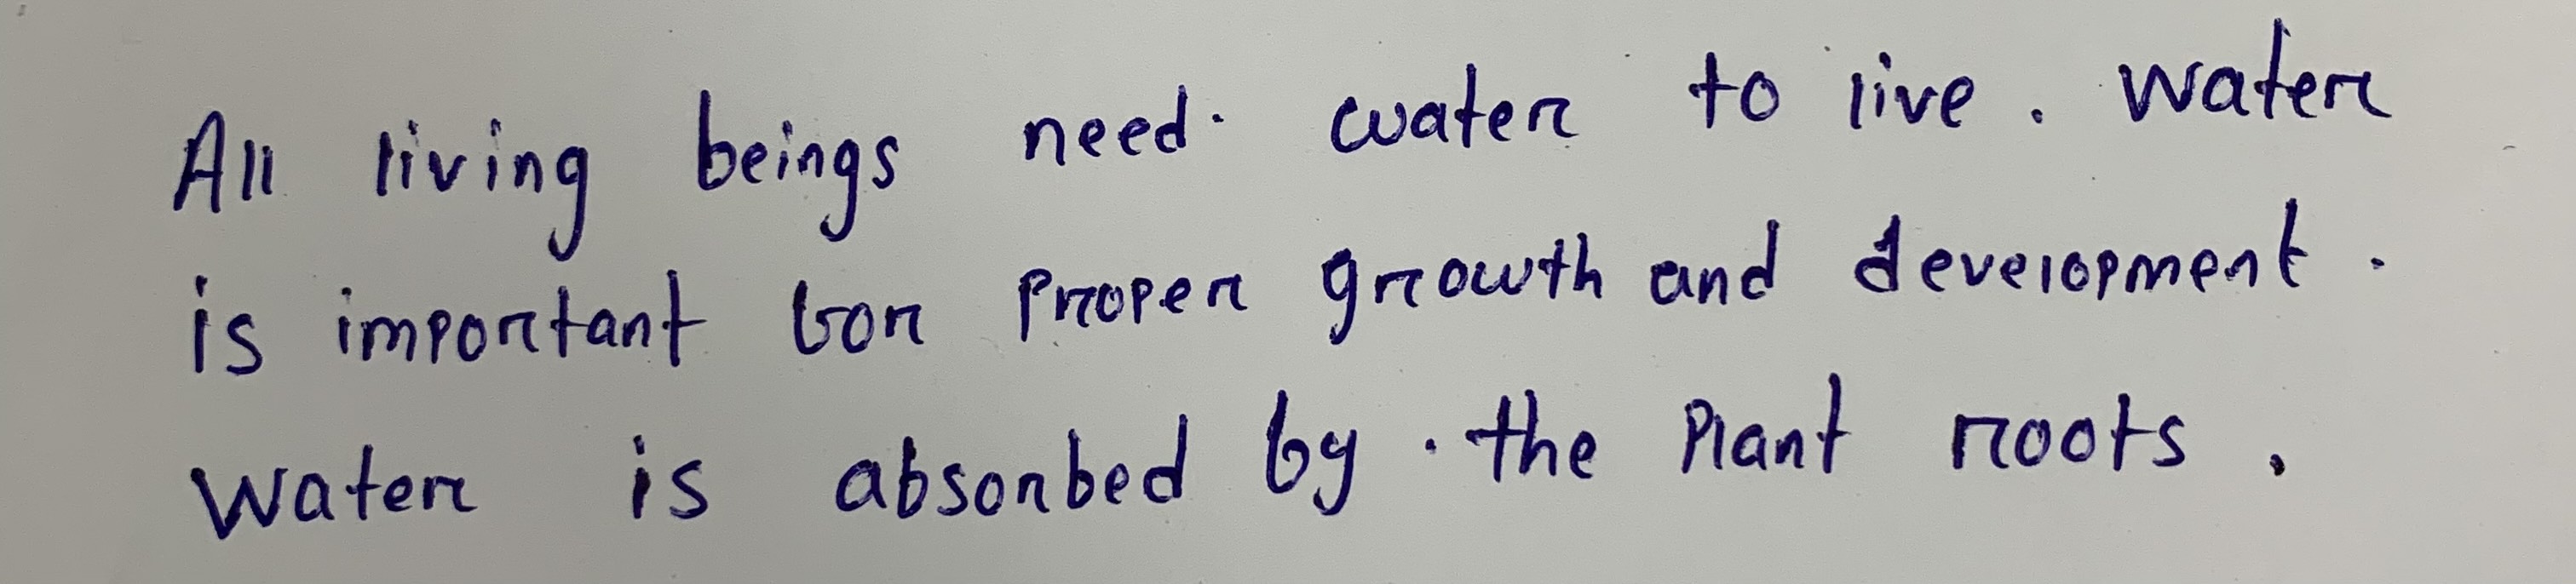 All living beings need water to live. Water
is important for proper growth and development.
Water is absorbed by the Plant roots.